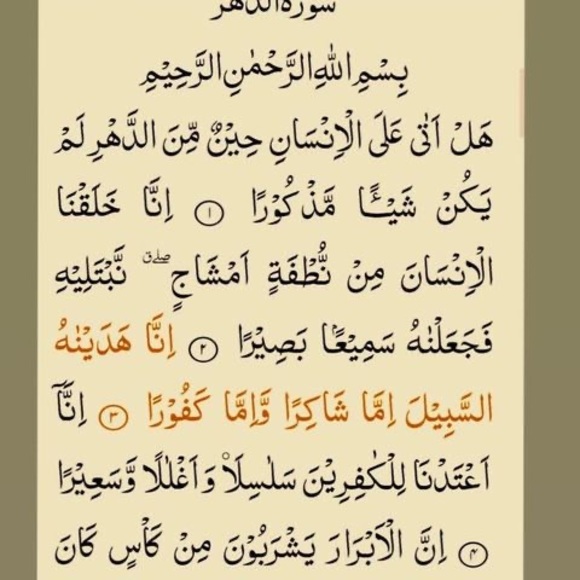 سورة الدهر
بِسْمِ اللهِ الرَّحْمٰنِ الرَّحِيْمِ
هَلْ اَتٰى عَلَى الْاِنْسَانِ حِيْنٌ مِّنَ الدَّهْرِ لَمْ
يَكُنْ شَيْـًٔا مَّذْكُوْرًا ۝۱ اِنَّا خَلَقْنَا
الْاِنْسَانَ مِنْ نُّطْفَةٍ اَمْشَاجٍ ۖق نَّبْتَلِيْهِ
فَجَعَلْنٰهُ سَمِيْعًۢا بَصِيْرًا ۝۲ اِنَّا هَدَيْنٰهُ
السَّبِيْلَ اِمَّا شَاكِرًا وَّاِمَّا كَفُوْرًا ۝۳ اِنَّاۤ
اَعْتَدْنَا لِلْكٰفِرِيْنَ سَلٰسِلَا۟ وَاَغْلٰلًا وَّسَعِيْرًا
۝۴ اِنَّ الْاَبْرَارَ يَشْرَبُوْنَ مِنْ كَاْسٍ كَانَ